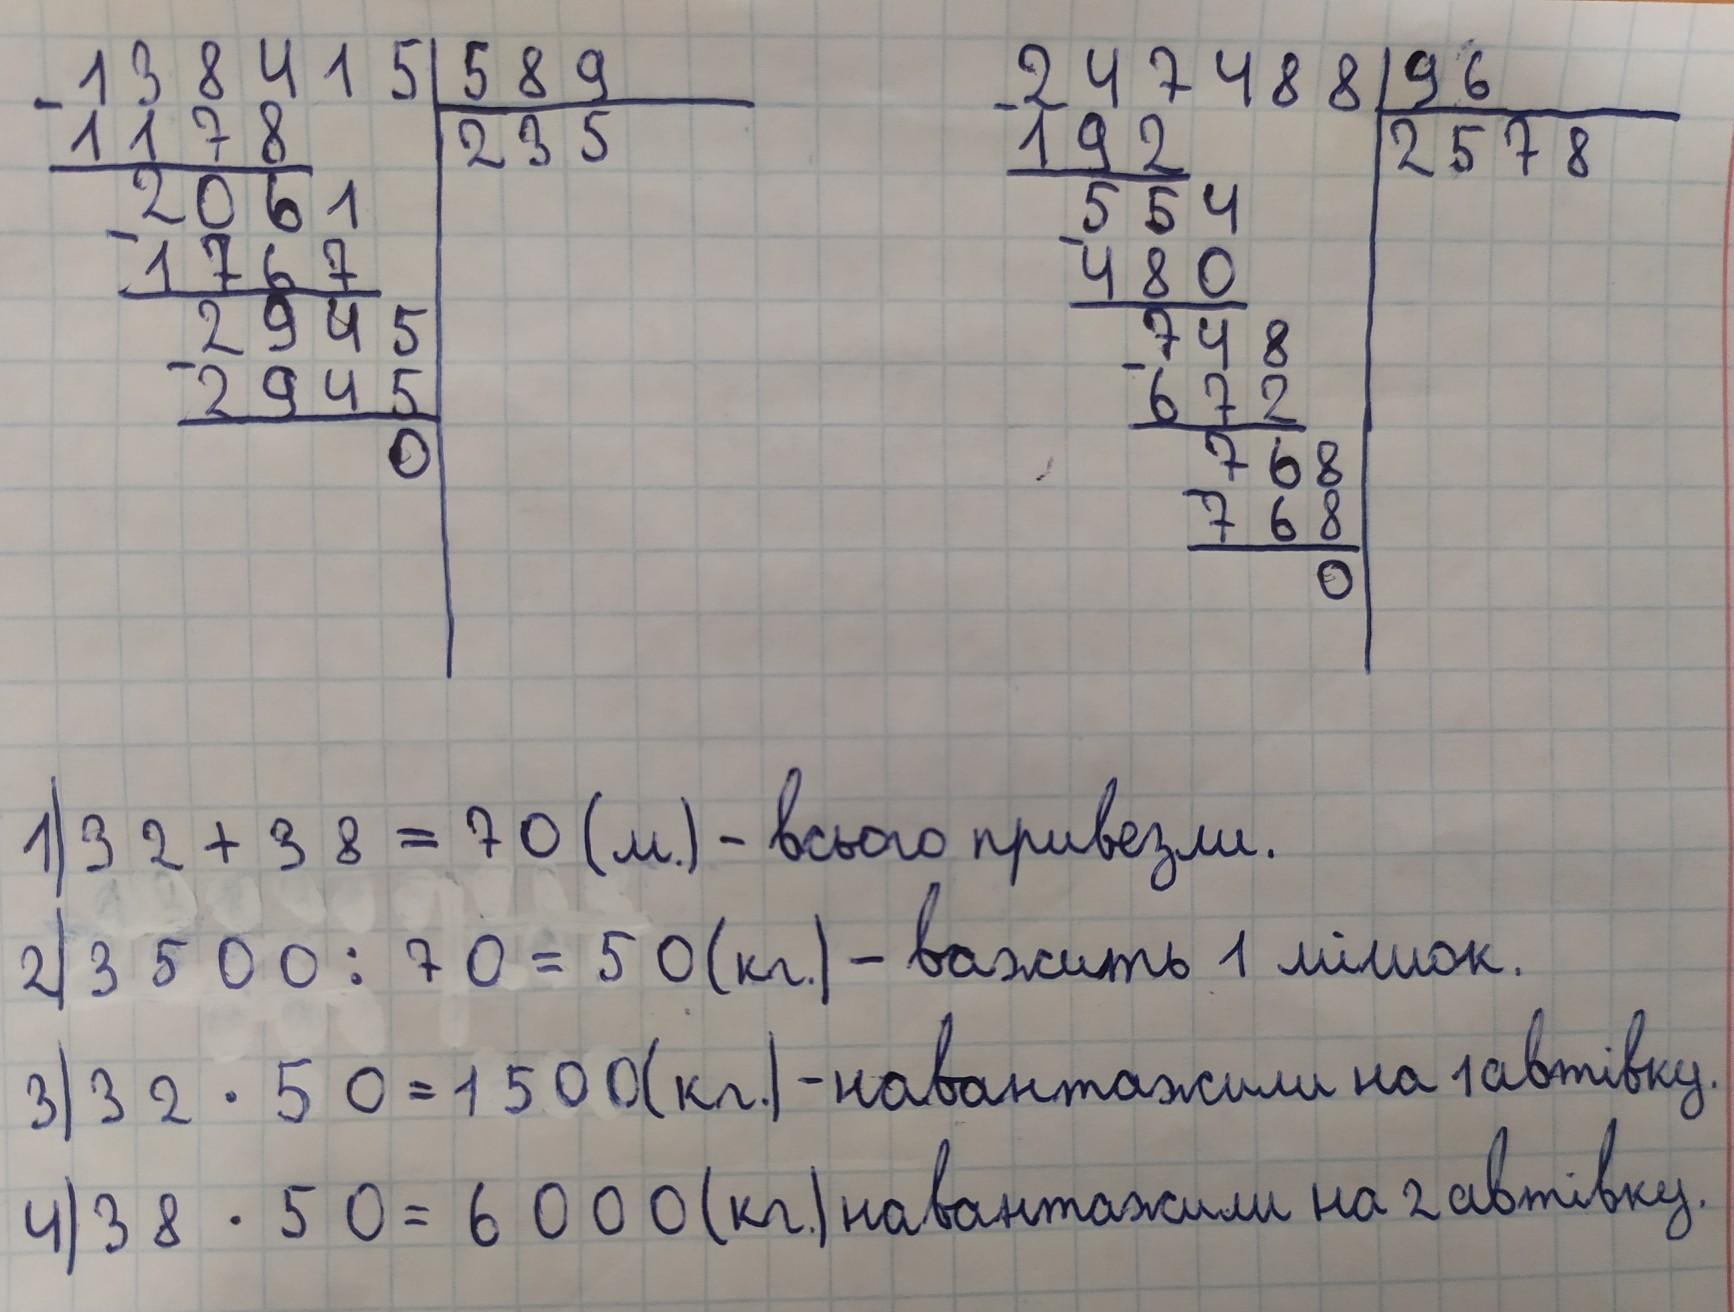 138415 589
1178 235
2061
1767
2945
2945
0
247488 96
192 2578
554
480
748
672
768
768
0
1) 32 + 38 = 70 (м.) - всього привезли.
2) 3500 : 70 = 50 (кг.) - важить 1 мішок.
3) 32 · 50 = 1500 (кг.) - навантажили на 1 автівку.
4) 38 · 50 = 6000 (кг.) навантажили на 2 автівку.